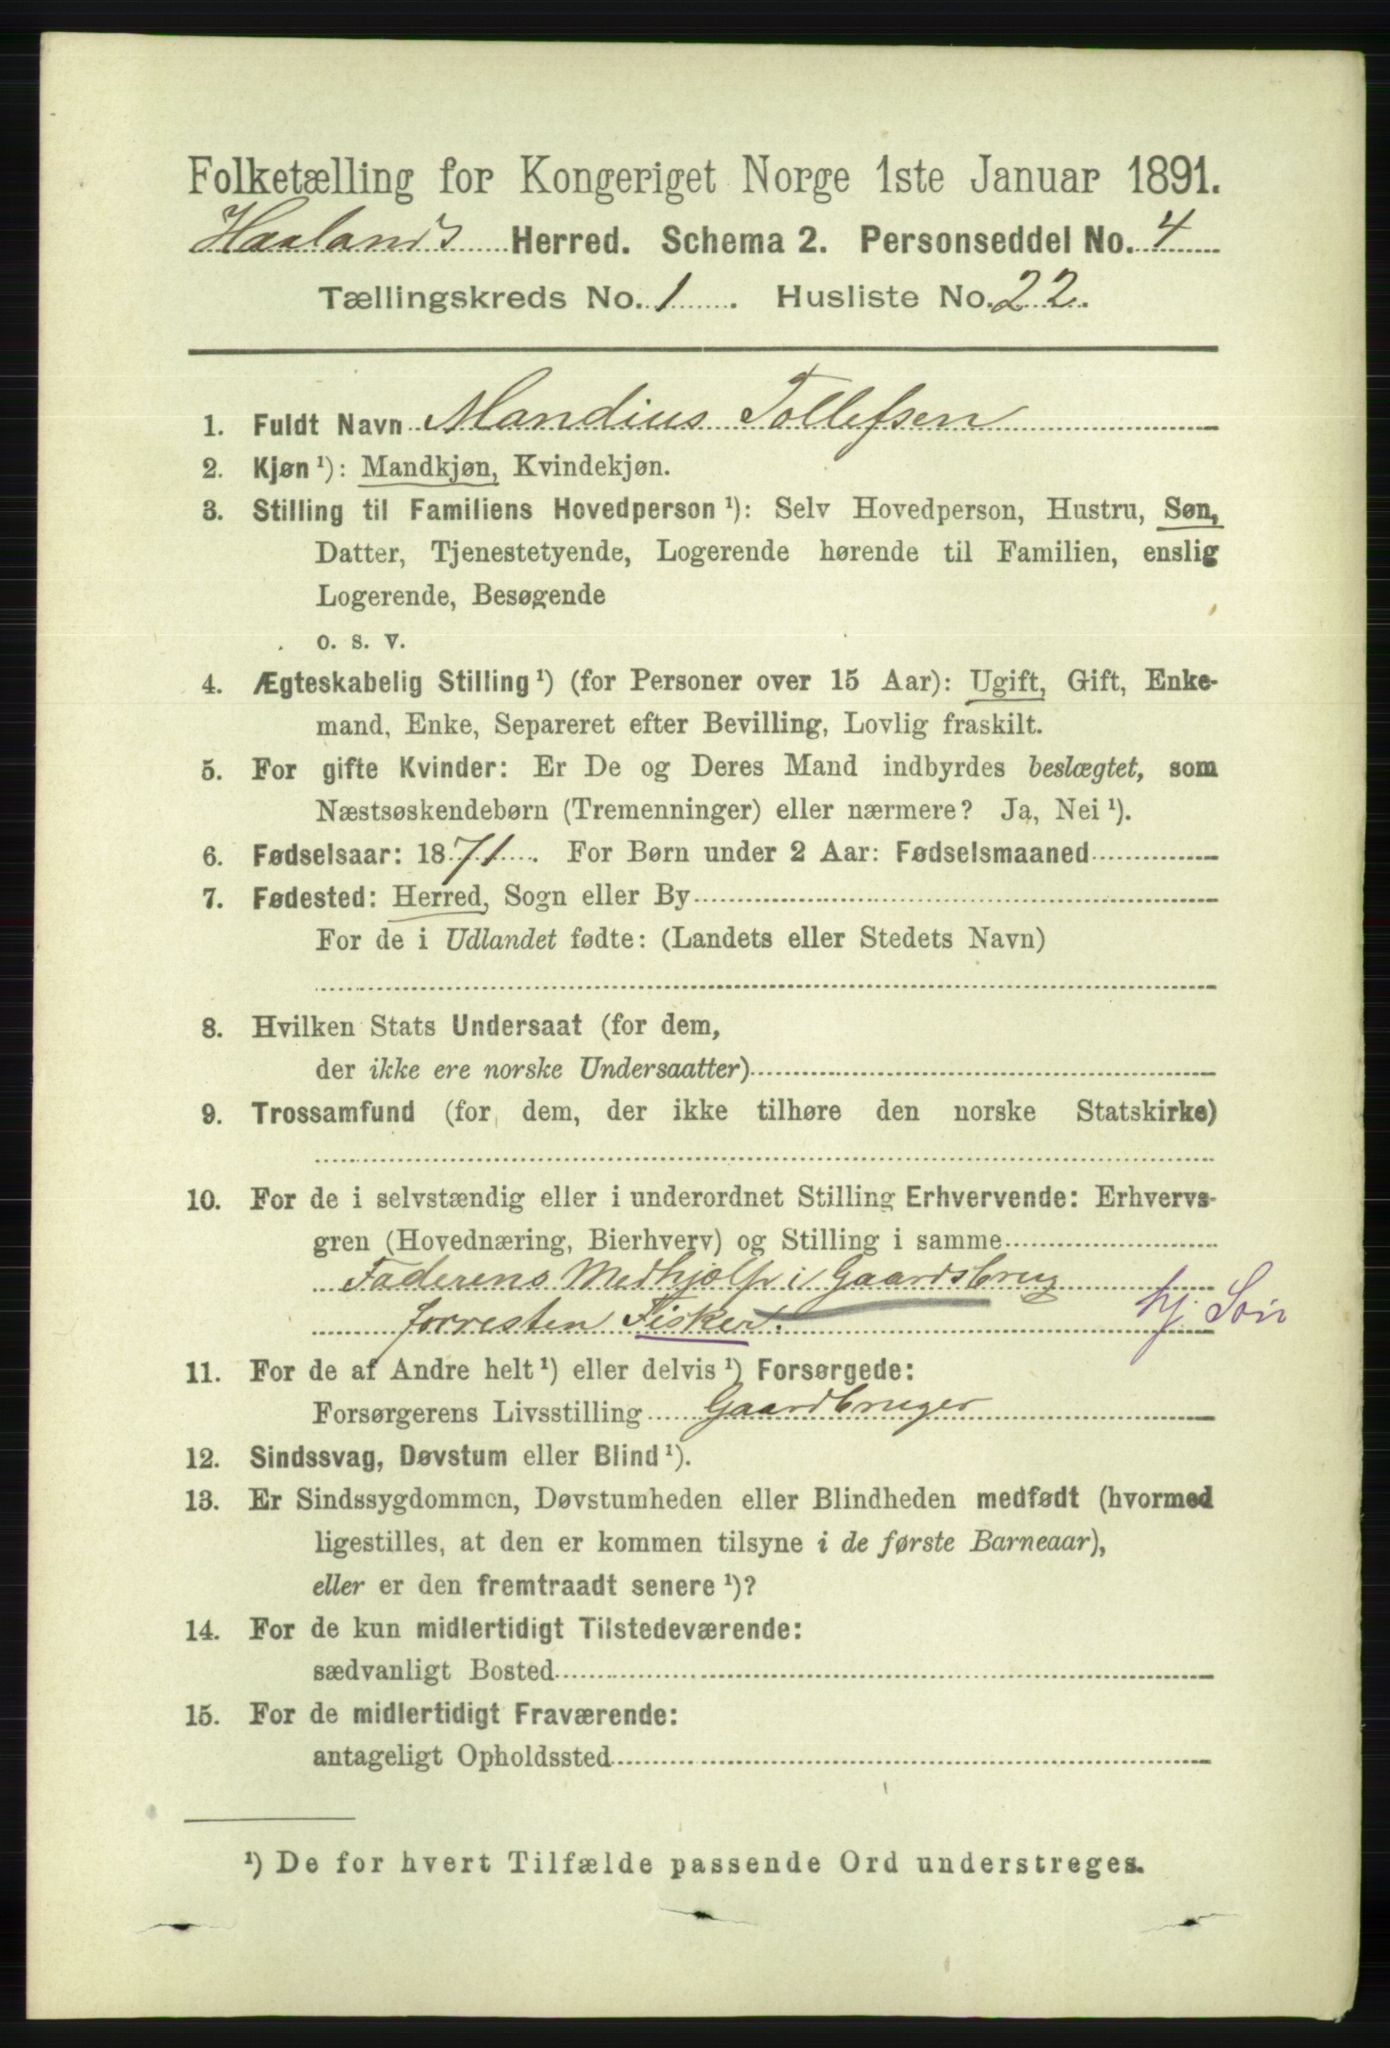 Folketælling for Kongeriget Norge 1ste Januar 1891.
Haalands Herred. Schema 2. Personseddel No. 4
Tællingskreds No. 1. Husliste No. 22.
1. Fuldt Navn Mandius Tollefsen
2. Kjøn ¹): Mandkjøn, Kvindekjøn.
3. Stilling til Familiens Hovedperson ¹): Selv Hovedperson, Hustru, Søn,
Datter, Tjenestetyende, Logerende hørende til Familien, enslig
Logerende, Besøgende
o. s. v.
4. Ægteskabelig Stilling ¹) (for Personer over 15 Aar): Ugift, Gift, Enke-
mand, Enke, Separeret efter Bevilling, Lovlig fraskilt.
5. For gifte Kvinder: Er De og Deres Mand indbyrdes beslægtet, som
Næstsøskendebørn (Tremenninger) eller nærmere? Ja, Nei ¹).
6. Fødselsaar: 1871. For Børn under 2 Aar: Fødselsmaaned
7. Fødested: Herred, Sogn eller By
For de i Udlandet fødte: (Landets eller Stedets Navn)
8. Hvilken Stats Undersaat (for dem,
der ikke ere norske Undersaatter)
9. Trossamfund (for dem, der ikke tilhøre den norske Statskirke)
10. For de i selvstændig eller i underordnet Stilling Erhvervende: Erhvervs-
gren (Hovednæring, Bierhverv) og Stilling i samme
Faderens Medhjælp i Gaardsbrug
forresten Fisker. hj. Søn
11. For de af Andre helt ¹) eller delvis ¹) Forsørgede:
Forsørgerens Livsstilling Gaardbruger
12. Sindssvag, Døvstum eller Blind ¹).
13. Er Sindssygdommen, Døvstumheden eller Blindheden medfødt (hvormed
ligestilles, at den er kommen tilsyne i de første Barneaar),
eller er den fremtraadt senere ¹)?
14. For de kun midlertidigt Tilstedeværende:
sædvanligt Bosted
15. For de midlertidigt Fraværende:
antageligt Opholdssted
¹) De for hvert Tilfælde passende Ord understreges.